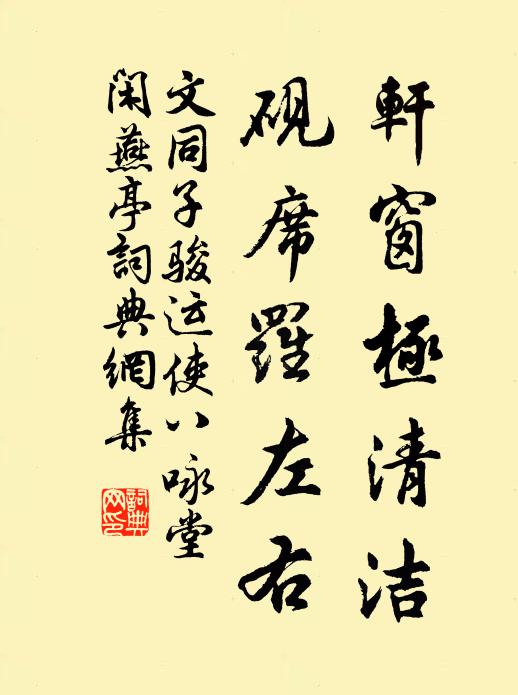 軒窗極清洁
砚席羅左右
文同子骏运使八咏堂
闲燕亭詞典網集
詞典网印